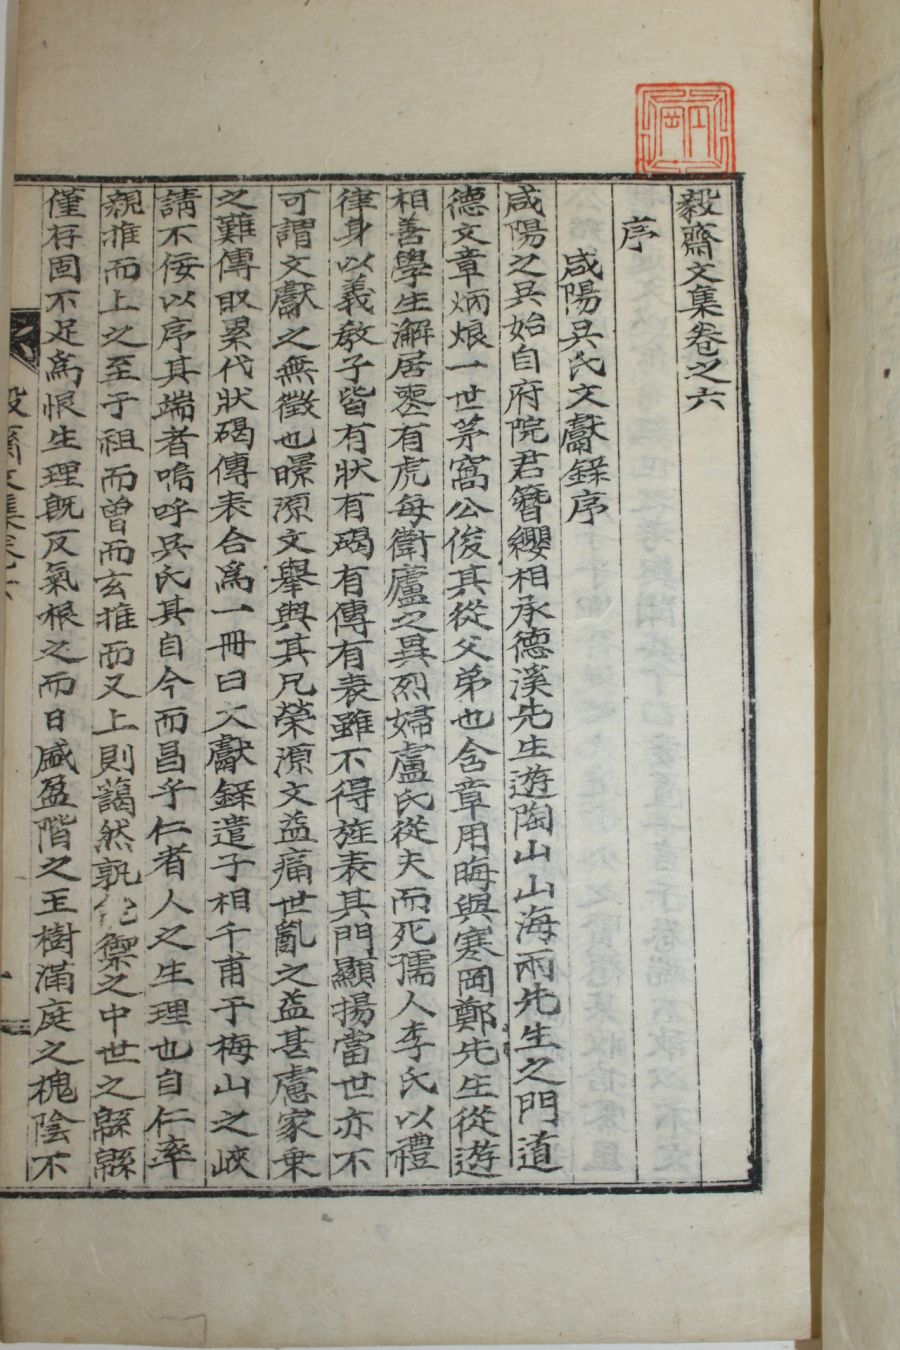 毅齋文集卷之六
序
咸陽吳氏文獻錄序
咸陽之吳始自府院君簪纓相承德溪先生遊陶山山海兩先生之門道
德文章炳烺一世茅窩公俊其從父弟也含章用晦與寒岡鄭先生從遊
相善學生澥居喪有虎每衛廬之異烈婦盧氏從夫而死孺人李氏以禮
律身以義敎子皆有狀有碣有傳有表雖不得旌表其門顯揚當世亦不
可謂文獻之無徵也暻源文擧與其兄榮源文益痛世亂之益甚慮家乘
之難傳取累代狀碣傳表合爲一冊曰文獻錄遣子相千甫于梅山之峽
請不佞以序其端者嗚呼吳氏其自今而昌乎仁者人之生理也自仁率
親推而上之至于祖而曾而玄推而又上則藹然孰能禦之中世之緜緜
僅存固不足爲恨生理旣反氣根之而日盛盈階之玉樹滿庭之槐陰不
毅齋文集卷六